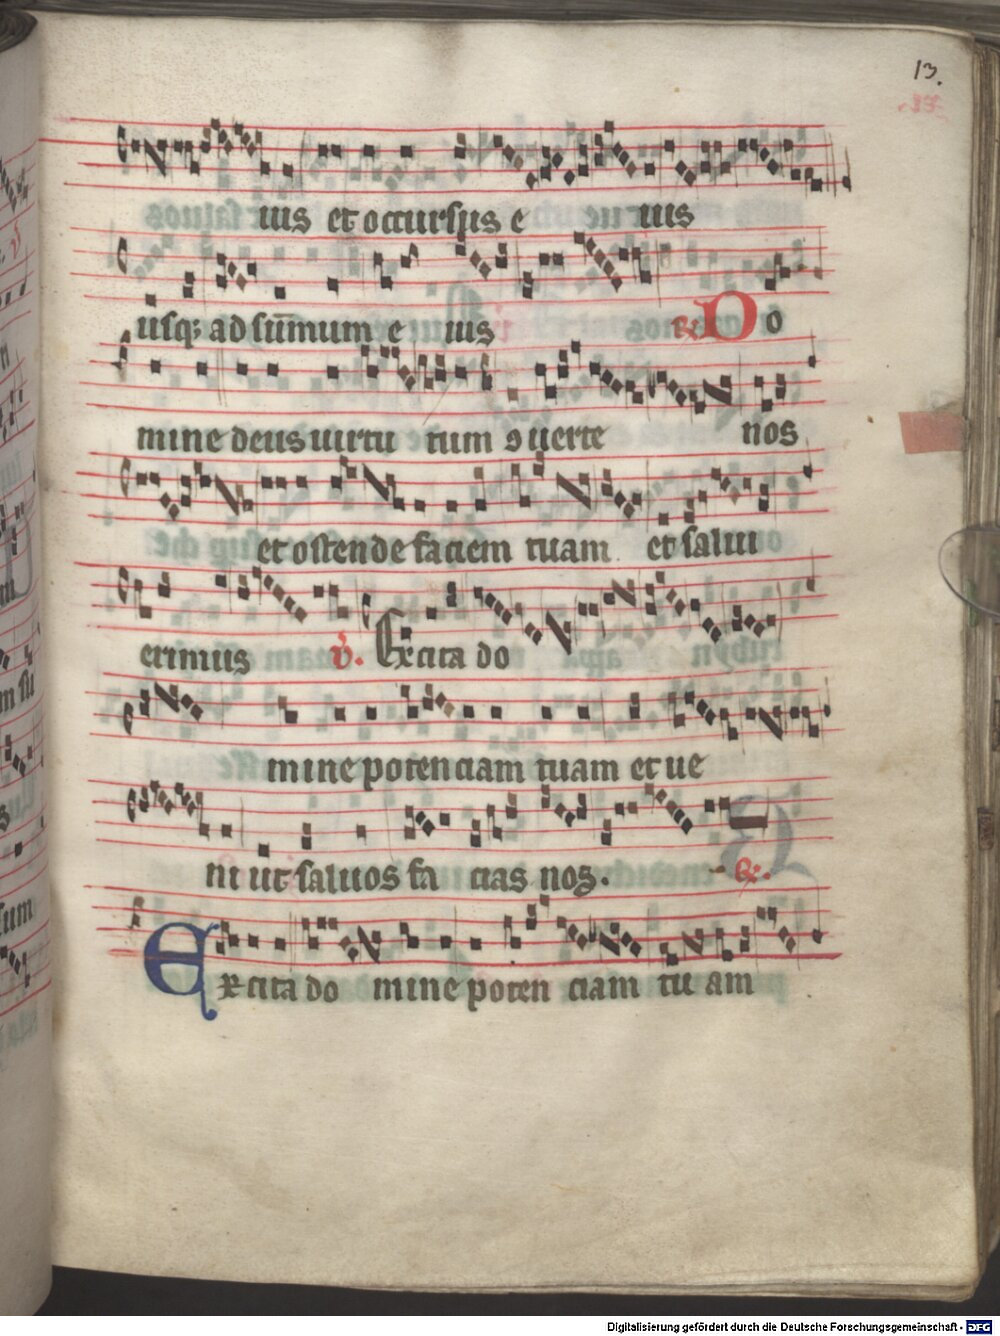 13.
ius et occursus e ius
usq; ad sum̄mum e ius ℟ Do
mine deus uirtu tum ꝯ uerte nos
et ostende faciem tuam et salui
erimus v̓. Excita do
mine potenciam tuam et ue
ni ut saluos fa cias nos. ℟.
Excita do mine poten ciam tu am
Digitalisierung gefördert durch die Deutsche Forschungsgemeinschaft - DFG